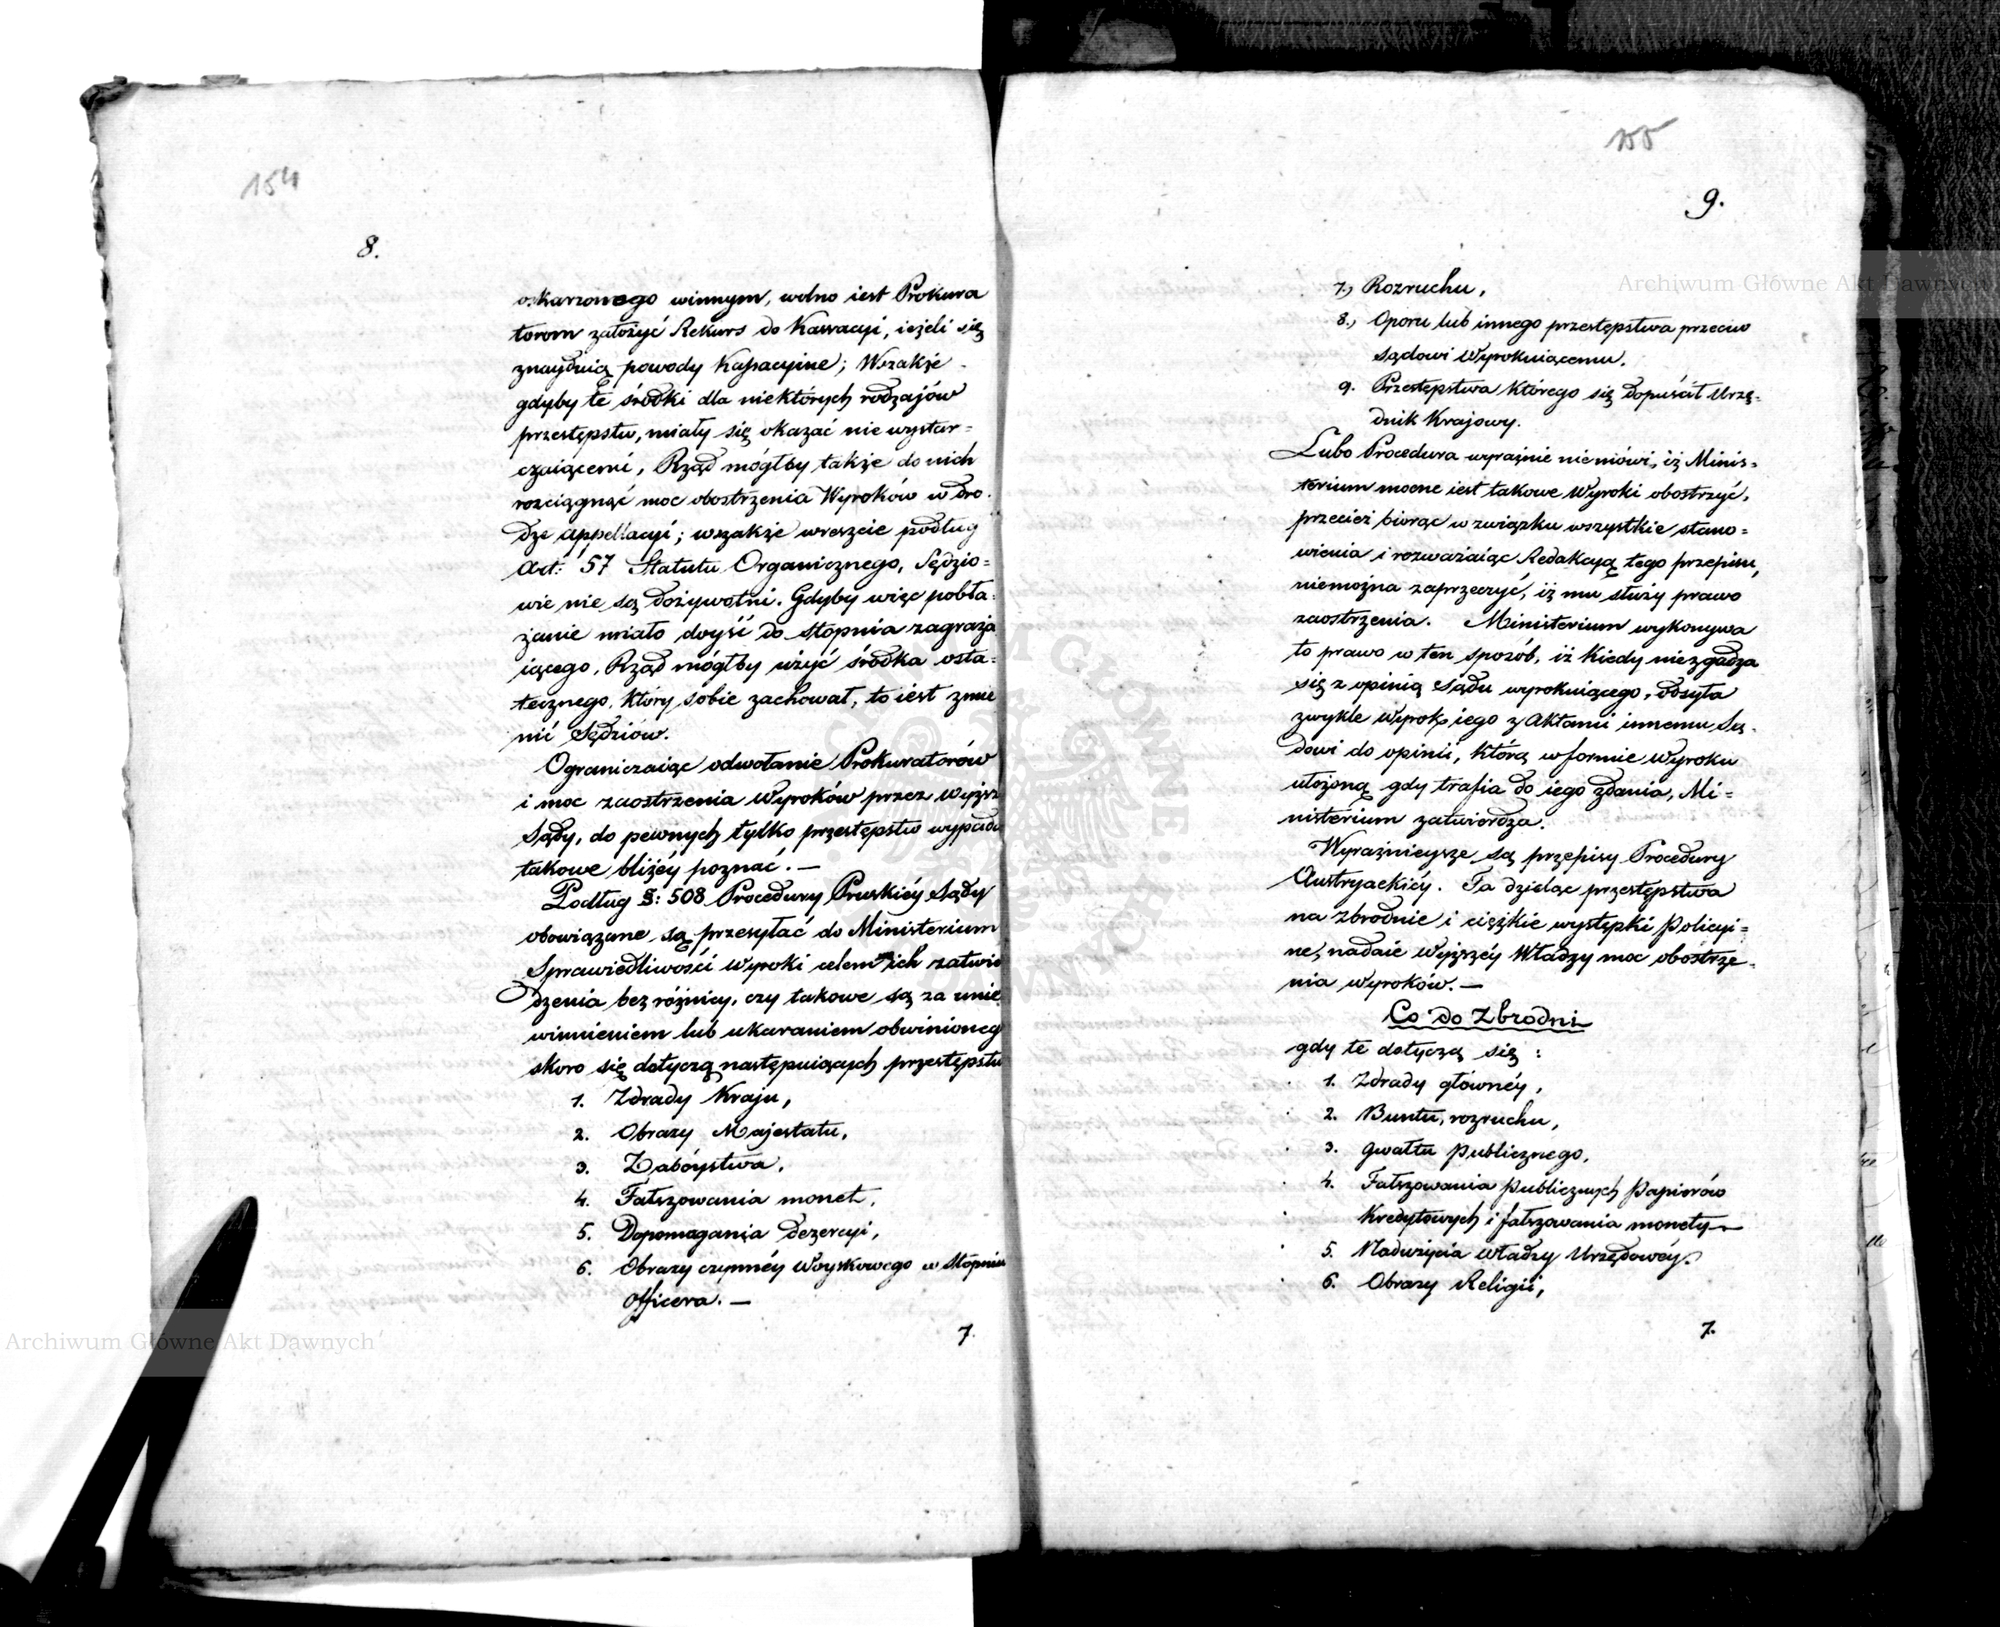 154
8.
oskarzonego winnym, wolno iest Prokura
torom założyć Rekurs do Kassacyi, ieżeli się
znayduią powody Kassacyine; Wszakże
gdyby te środki dla niektórych rodzajów
przestępstw, miały się okazać nie wystar=
czaiącemi, Rząd mógłby także do nich
rozciągnąć moc obostrzenia Wyroków w dro=
dze appellacyi; wszakże wreszcie podług
Art: 57 Statutu Organicznego, Sędzio=
wie nie są dożywotni. Gdyby więc pobła=
żanie miało dóyść do stopnia zagraża
iącego, Rząd mógłby użyć środka osta=
tecznego, który sobie zachował, to iest zmie
nić Sędziów.
Ograniczaiąc odwołanie Prokuratorów
i moc zaostrzenia Wyroków przez wyższ
Sądy, do pewnych tylko przestępstw wypada
takowe bliżéy poznać. —
Podług §: 508 Procedury Pruskiéy Sądy
obowiązane są przesyłać do Ministerium
Sprawiedliwości Wyroki celem ich zatwie
dzenia bez różnicy, czy takowe są za unie
winnieniem lub ukaraniem obwinioneg
skoro się dotyczą następuiących przestępstw
1. Zdrady Kraju,
2. Obrazy Majestatu,
3. Zabóystwa,
4. Fałszowania monet,
5. Dopomagania dezercyi,
6. Obrazy czynnéy Woyskowego w stopniu
Officera. —
7.
155
9.
7.) Rozruchu,
8.) Oporu lub innego przestępstwa przeciw
Sądowi Wyrokuiącemu.
9. Przestępstwa którego się dopuścił Urzę=
dnik Krajowy.
Lubo Procedura wyraźnie nie mówi, iż Minis=
terium mocne iest takowe Wyroki obostrzyć,
przecież biorąc w związku wszystkie stano=
wienia i rozważaiąc Redakcyą tego przepisu,
niemożna zaprzeczyć, iż mu służy prawo
zaostrzenia. Ministerium wykonywa
to prawo w ten sposób, iż kiedy niezgadza
się z opinią Sądu wyrokuiącego, odsyła
zwykle Wyrok iego z Aktami innemu Są=
dowi do opinii, którą w formie Wyroku
ułożoną gdy trafia do iego zdania, Mi=
nisterium zatwierdza.
Wyraźnieysze są przepisy Procedury
Austryackiéy. Ta dzieląc przestępstwa
na zbrodnie i ciężkie występki Policyi=
ne, nadaie Wyższéy Władzy moc obostrze=
nia wyroków. —
Co do Zbrodni
gdy te dotyczą się:
1. Zdrady głównéy,
2. Buntu, rozruchu,
3. Gwałtu publicznego,
4. Fałszowania publicznych Papierów
Kredytowych i fałszowania monety
5. Nadużycia władzy Urzędowéy.
6. Obrazy Religii,
7.
Archiwum Główne Akt Dawnych
Archiwum Główne Akt Dawnych